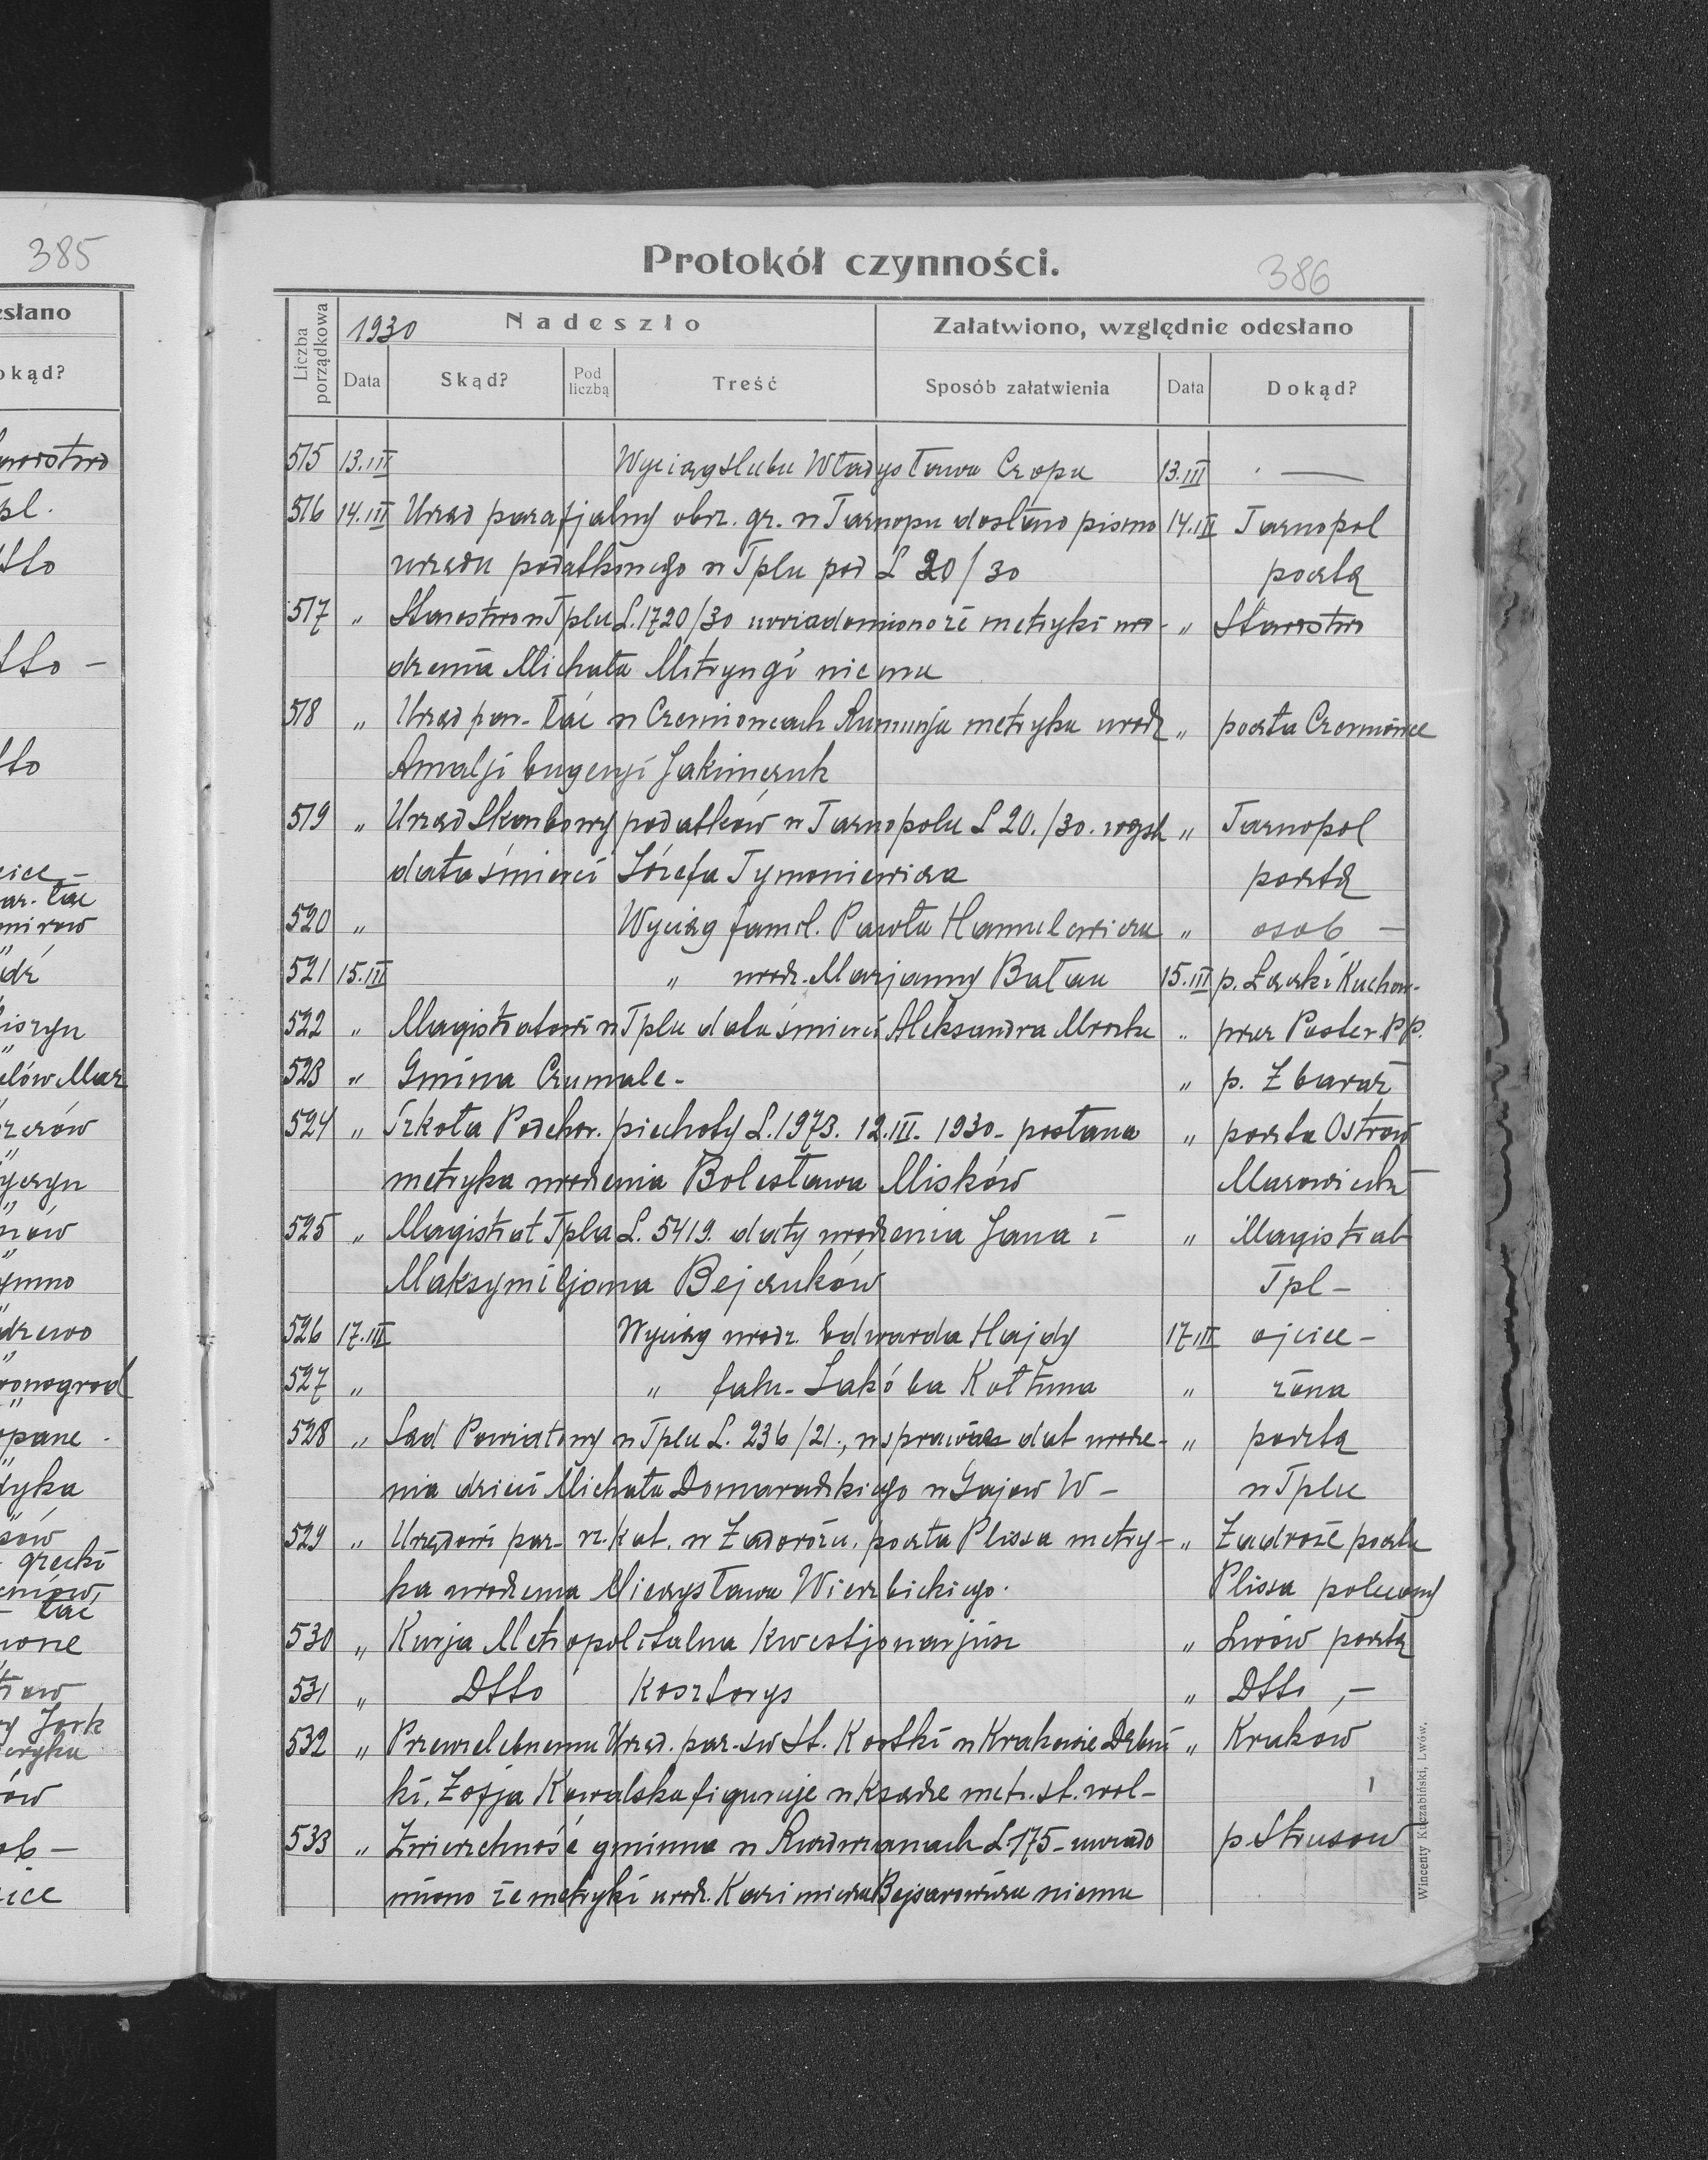 385
esłano
okąd?
pl.
tto
tto -
tto
ar. łac
dyka
grecki
łac
Jork
ob -
Protokół czynności.
386
Liczba porządkowa
1930
Nadeszło
Załatwiono, względnie odesłano
Data Skąd? Pod liczbą Treść Sposób załatwienia Data Dokąd?
515 13.III Wyciąg slubu Władysława Czopa 13.III . —
516 14.III Urząd parafjalny obrz. gr. w Tarnopu dosłano pismo 14.III Tarnopol
urzędu podatkowego w Tplu pod L 20/30 pocztą
517 " Starostwo w Tplu L.1720/30 uwiadomiono że metryki uro- " Starostwo
dzenia Michała Mitryngi niema
518 " Urząd par. łać w Czerniowcach Rumunja metryka urodz " poczta Czerniowce
Amalji Eugenji Jakimczuk
519 " Urząd Skarbowy podatków w Tarnopolu L 20./30. " Tarnopol
data śmierci Józefa Tymoniewicza pocztą
520 " Wyciąg famil. Pawła Hamulewicza " osob -
521 15.III " urodz. Marjanny Bałan 15.III p. Łozki Kuchar-
522 " Magistratowi w Tplu data śmierci Aleksandra Mroczka " przez Poster. P.P.
523 " Gmina Czumale - " p. Zbaraż
524 " Szkoła Podchor. piechoty L.1973. 12.III. 1930 - posłana " poczta Ostrow
metryka urodzenia Bolesława Misków Mazowiecki
525 " Magistrat Tpla L. 5419. daty urodzenia Jana i " Magistrat
Maksymiljana Bejczuków Tpl -
526 17.III Wyciąg urodz. Edwarda Hajdy 17.III ojciec -
527 " " fam. Jakóba Kołtuna " żona
528 " Sąd Powiatowy w Tplu L. 236/21., w sprawie dat urodze- " pocztą
nia dzieci Michała Domaradzkiego w Gajow W - w Tplu
529 " Urzędowi par. rz. kat. w Zadorożu, poczta Plissa metry- " Zadroże poczta
ka urodzenia Mieczysława Wierzbickiego. Plissa polecony
530 " Kurja Metropolitalna Kwestjonarjusz " Lwów pocztą
531 " Dtto Kosztorys " Dtto , -
532 " Przewielebnemu Urzęd. par. św St. Kostki w Krakowie Dębni " Kraków
ki. Zofja Kowalska figuruje w księdze metr. st. wol-
533 " Zwierzchność gminna w L 175 - uwiado p. Strusow
miono że metryki urodz. Kazimierza Bejsarowicza niema
Wincenty Kuczabiński, Lwów.